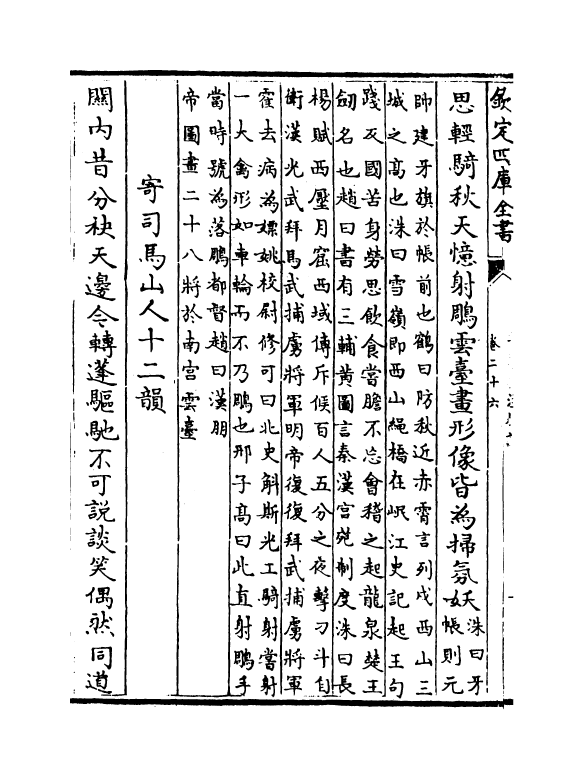 欽定四庫全書
卷二十六
思輕騎秋天憶射鵰雲臺畫形像皆為掃氛妖
洙曰牙
帳則元
帥建牙旗於帳前也鶴曰防秋近赤霄言列戍西山三
城之髙也洙曰雪嶺即西山繩橋在岷江史記越王句
踐反國苦身勞思飲食嘗膽不忘會稽之起龍泉楚王
劒名也趙曰書有三輔黄圖言秦漢宫苑制度洙曰長
楊賦西壓月窟西域傳斥候百人五分之夜擊刁斗自
衛漢光武拜馬武捕虜將軍明帝復復拜武捕虜將軍
霍去病為嫖姚校尉修可曰北史斛斯光工騎射嘗射
一大禽形如車輪而下乃鵰也邢子髙曰此直射鵰手
當時號為落鵰都督趙曰漢朋
帝圖畫二十八將於南宫雲臺
寄司馬山人十二韻
關内昔分袂天邊今轉蓬驅馳不可説談笑偶然同道